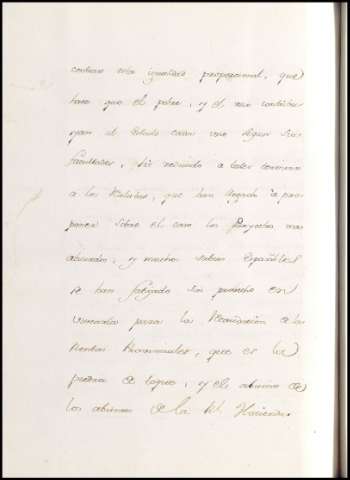 contrar esta igualdad proporcional, que
hace que el pobre, y el rico contribu
yan al Estado cada uno segun sus
facultades, ha reducido a tales
a los Ministros, que han llegado a pro
poner sobre el caso los Proyectos mas
absurdos; y muchos sabios Españoles
se han fatigado sin provecho en
para la Recaudacion de las
Rentas Provinciales, que es la
piedra de toque, y el abismo de
los abismos de la Rl. Hacienda.